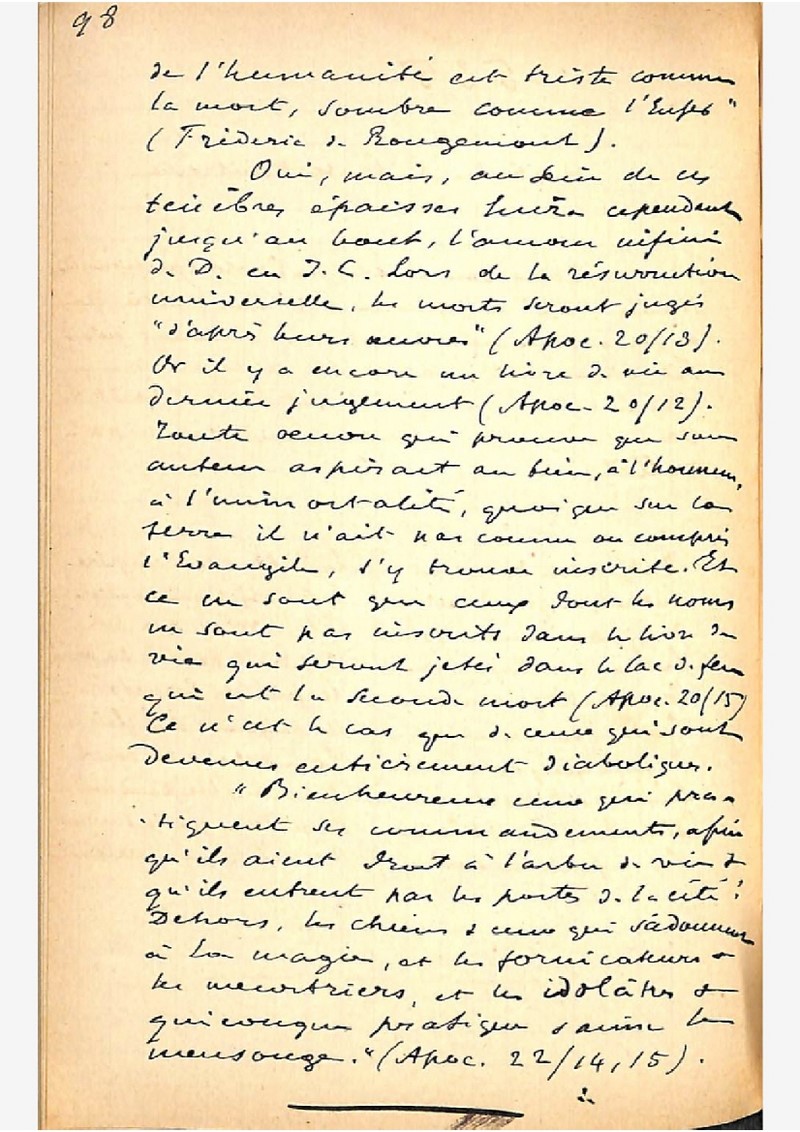 98
de l'humanité est triste comme
la mort, sombre comme l'Enfer"
(Fréderic de Rougemont).
Oui, mais, au sein de ces
ténèbres épaisses luira cependant
jusqu'au bout, l'amour infini
de D. en J. C. Lors de la résurrection
universelle, les morts seront jugés
"d'après leurs œuvres" (Apoc. 20/13).
Or il y a encore un livre de vie au
dernier jugement (Apoc. 20/12).
Toute œuvre qui prouve que son
auteur aspirait au bien, à l'honneur,
à l'immortalité, quoique sur la
terre il n'ait pas connu ou compris
l'Evangile, s'y trouve inscrite. Et
ce ne sont que ceux dont les noms
ne sont pas inscrits dans le livre de
vie qui seront jetés dans le lac de feu
qui est la seconde mort (Apoc. 20/15)
Ce n'est le cas que de ceux qui sont
devenus entièrement diaboliques.
"Bienheureux ceux qui pra-
tiquent ses commandements, afin
qu'ils aient droit à l'arbre de vie &
qu'ils entrent par les portes de la cité!
Dehors, les chiens & ceux qui s'adonnent
à la magie, et les fornicateurs &
les meurtriers, et les idolâtres &
quiconque pratique & aime le
mensonge." (Apoc. 22/14, 15).